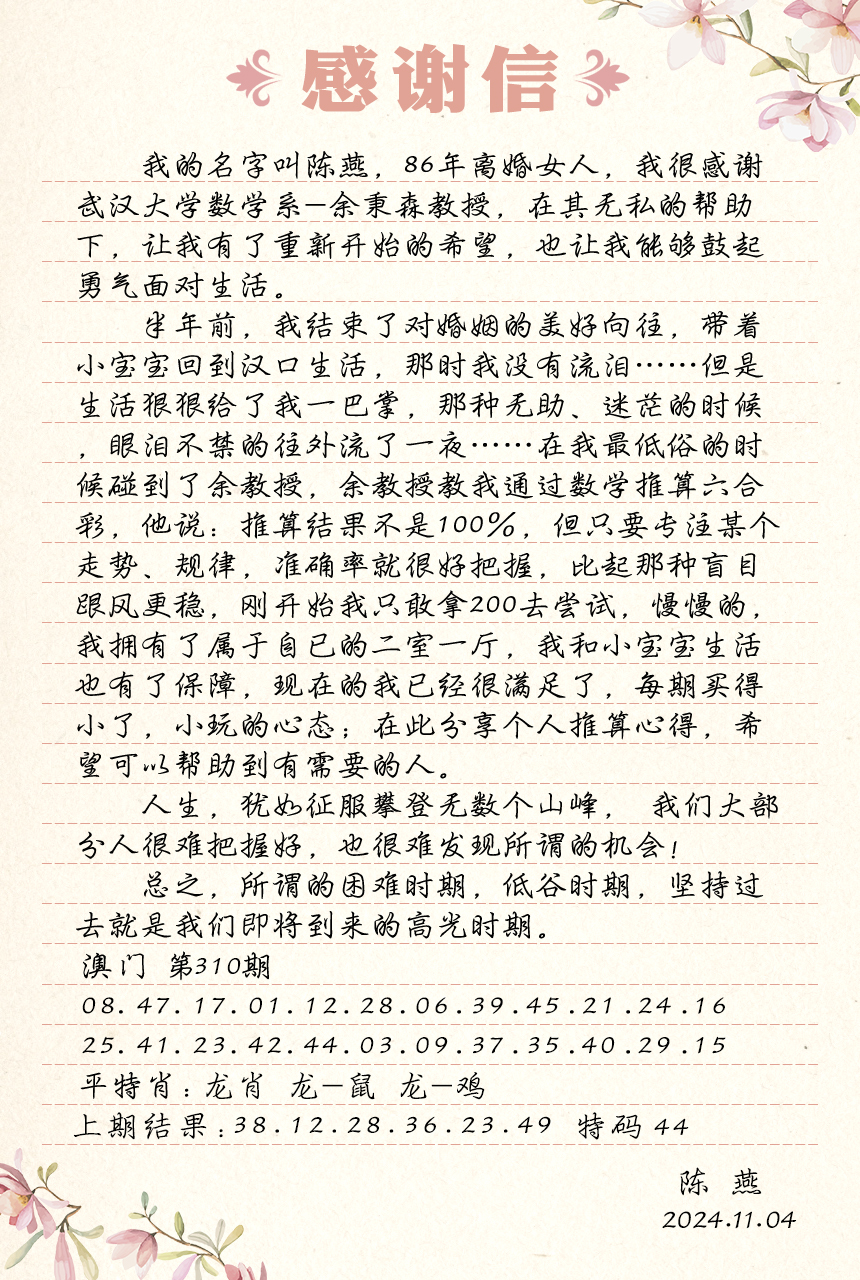 感谢信
我的名字叫陈燕，86年离婚女人，我很感谢
武汉大学数学系—余秉森教授，在其无私的帮助
下，让我有了重新开始的希望，也让我能够鼓起
勇气面对生活。
半年前，我结束了对婚姻的美好向往，带着
小宝宝回到汉口生活，那时我没有流泪……但是
生活狠狠给了我一巴掌，那种无助、迷茫的时候
，眼泪不禁的往外流了一夜……在我最低俗的时
候碰到了余教授，余教授教我通过数学推算六合
彩，他说：推算结果不是100%，但只要专注某个
走势、规律，准确率就很好把握，比起那种盲目
跟风更稳，刚开始我只敢拿200去尝试，慢慢的，
我拥有了属于自已的二室一厅，我和小宝宝生活
也有了保障，现在的我已经很满足了，每期买得
小了，小玩的心态；在此分享个人推算心得，希
望可以帮助到有需要的人。
人生，犹如征服攀登无数个山峰， 我们大部
分人很难把握好，也很难发现所谓的机会！
总之，所谓的困难时期，低谷时期，坚持过
去就是我们即将到来的高光时期。
澳门 第310期
08.47.17.01.12.28.06.39.45.21.24.16
25.41.23.42.44.03.09.37.35.40.29.15
平特肖：龙肖 龙—鼠 龙—鸡
上期结果：38.12.28.36.23.49 特码 44
陈 燕
2024.11.04